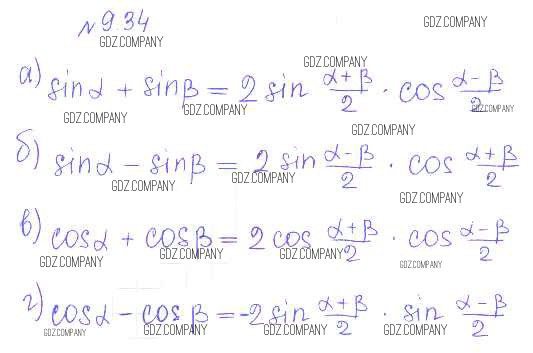 № 9.34
GDZ.COMPANY
GDZ.COMPANY
GDZ.COMPANY
а) sinα + sinβ = 2 sin (α+β)/2 · cos (α-β)/2
GDZ.COMPANY
GDZ.COMPANY
GDZ.COMPANY
GDZ.COMPANY
б) sinα - sinβ = 2 sin (α-β)/2 · cos (α+β)/2
GDZ.COMPANY
GDZ.COMPANY
GDZ.COMPANY
в) cosα + cosβ = 2 cos (α+β)/2 · cos (α-β)/2
GDZ.COMPANY
GDZ.COMPANY
GDZ.COMPANY
GDZ.COMPANY
г) cosα - cosβ = -2 sin (α+β)/2 · sin (α-β)/2
GDZ.COMPANY
GDZ.COMPANY
GDZ.COMPANY
GDZ.COMPANY